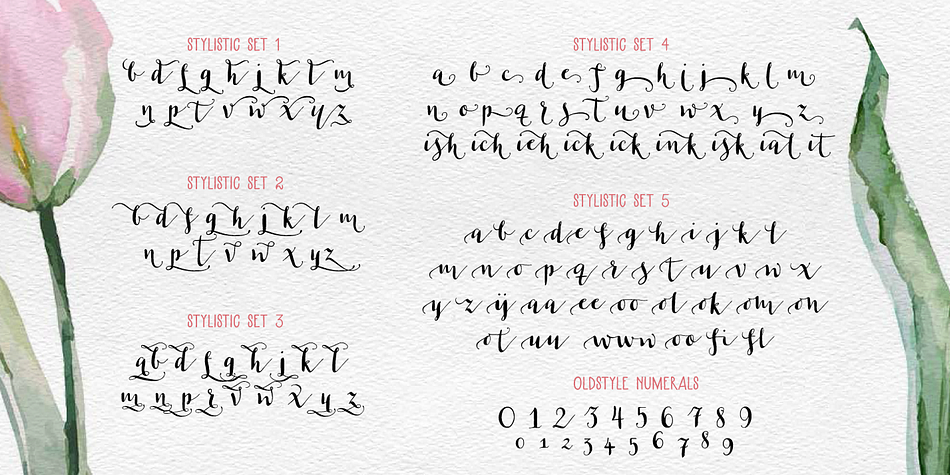 STYLISTIC SET 1
b d f g h j k l m
n p t v w x y z
STYLISTIC SET 2
b d f g h j k l m
n p t v w x y z
STYLISTIC SET 3
a b d f g h j k l
m n p r v w x y z
STYLISTIC SET 4
a b c d e f g h i j k l m
n o p q r s t u v w x y z
ish ich ieh ick ick ink isk iat it
STYLISTIC SET 5
a b c d e f g h i j k l
m n o p q r s t u v w x
y z ij aa ee oo ol ok om on
ot uu www oo fi fl
OLDSTYLE NUMERALS
0 1 2 3 4 5 6 7 8 9
0 1 2 3 4 5 6 7 8 9